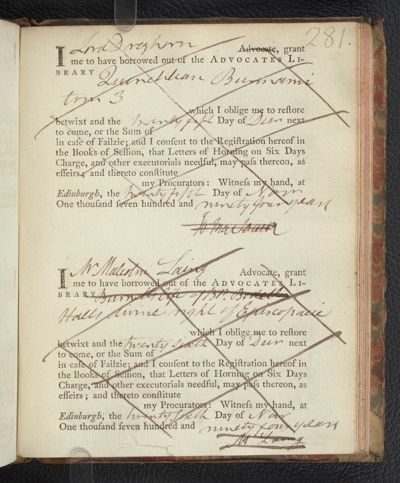 281.
I Lord Dreghorn Advocate, grant
me to have borrowed out of the ADVOCATES LI-
BRARY Quinctilian Burmanni
tom 3
which I oblige me to restore
betwixt and the twenty fifth Day of Decr next
to come, or the Sum of
in case of Failzie; and I consent to the Registration hereof in
the Books of Session, that Letters of Horning on Six Days
Charge, and other executorials needful, may pass thereon, as
effeirs; and thereto constitute
my Procurators: Witness my hand, at
Edinburgh, the twenty fifth Day of Novr
One thousand seven hundred and ninety four years
I Mr Malcolm Laing Advocate, grant
me to have borrowed out of the ADVOCATES LI-
BRARY life of Bp.
Halls divine right of Episcopacie
which I oblige me to restore
betwixt and the twenty sixth Day of Decr next
to come, or the Sum of
in case of Failzie; and I consent to the Registration hereof in
the Books of Session, that Letters of Horning on Six Days
Charge, and other executorials needful, may pass thereon, as
effeirs; and thereto constitute
my Procurators: Witness my hand, at
Edinburgh, the twenty sixth Day of Novr
One thousand seven hundred and ninety four years
Laing